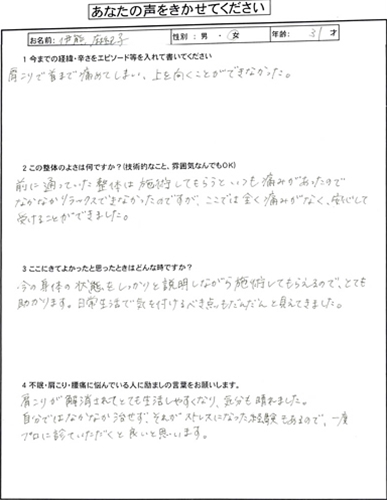 あなたの声をきかせてください
お名前: 伊
性別: 男・女
年齢: 31 才
1 今までの経緯・辛さをエピソード等を入れて書いてください
肩こりで首まで痛めてしまい、上を向くことができなかった。
2 この整体のよさは何ですか?(技術的なこと、雰囲気なんでもOK)
前に通っていた整体は施術してもらうといつも痛みがあったので
なかなかリラックスできなかったのですが、ここでは全く痛みがなく、安心して
受けることができました。
3 ここにきてよかったと思ったときはどんな時ですか?
今の身体の状態をしっかりと説明しながら施術してもらえるので、とても
助かります。日常生活で気を付けるべき点もだんだんと見えてきました。
4 不眠・肩こり・腰痛に悩んでいる人に励ましの言葉をお願いします。
肩こりが解消されてとても生活しやすくなり、気分も晴れました。
自分ではなかなか治せず、それがストレスになった経験もあるので、一度
プロに診ていただくと良いと思います。